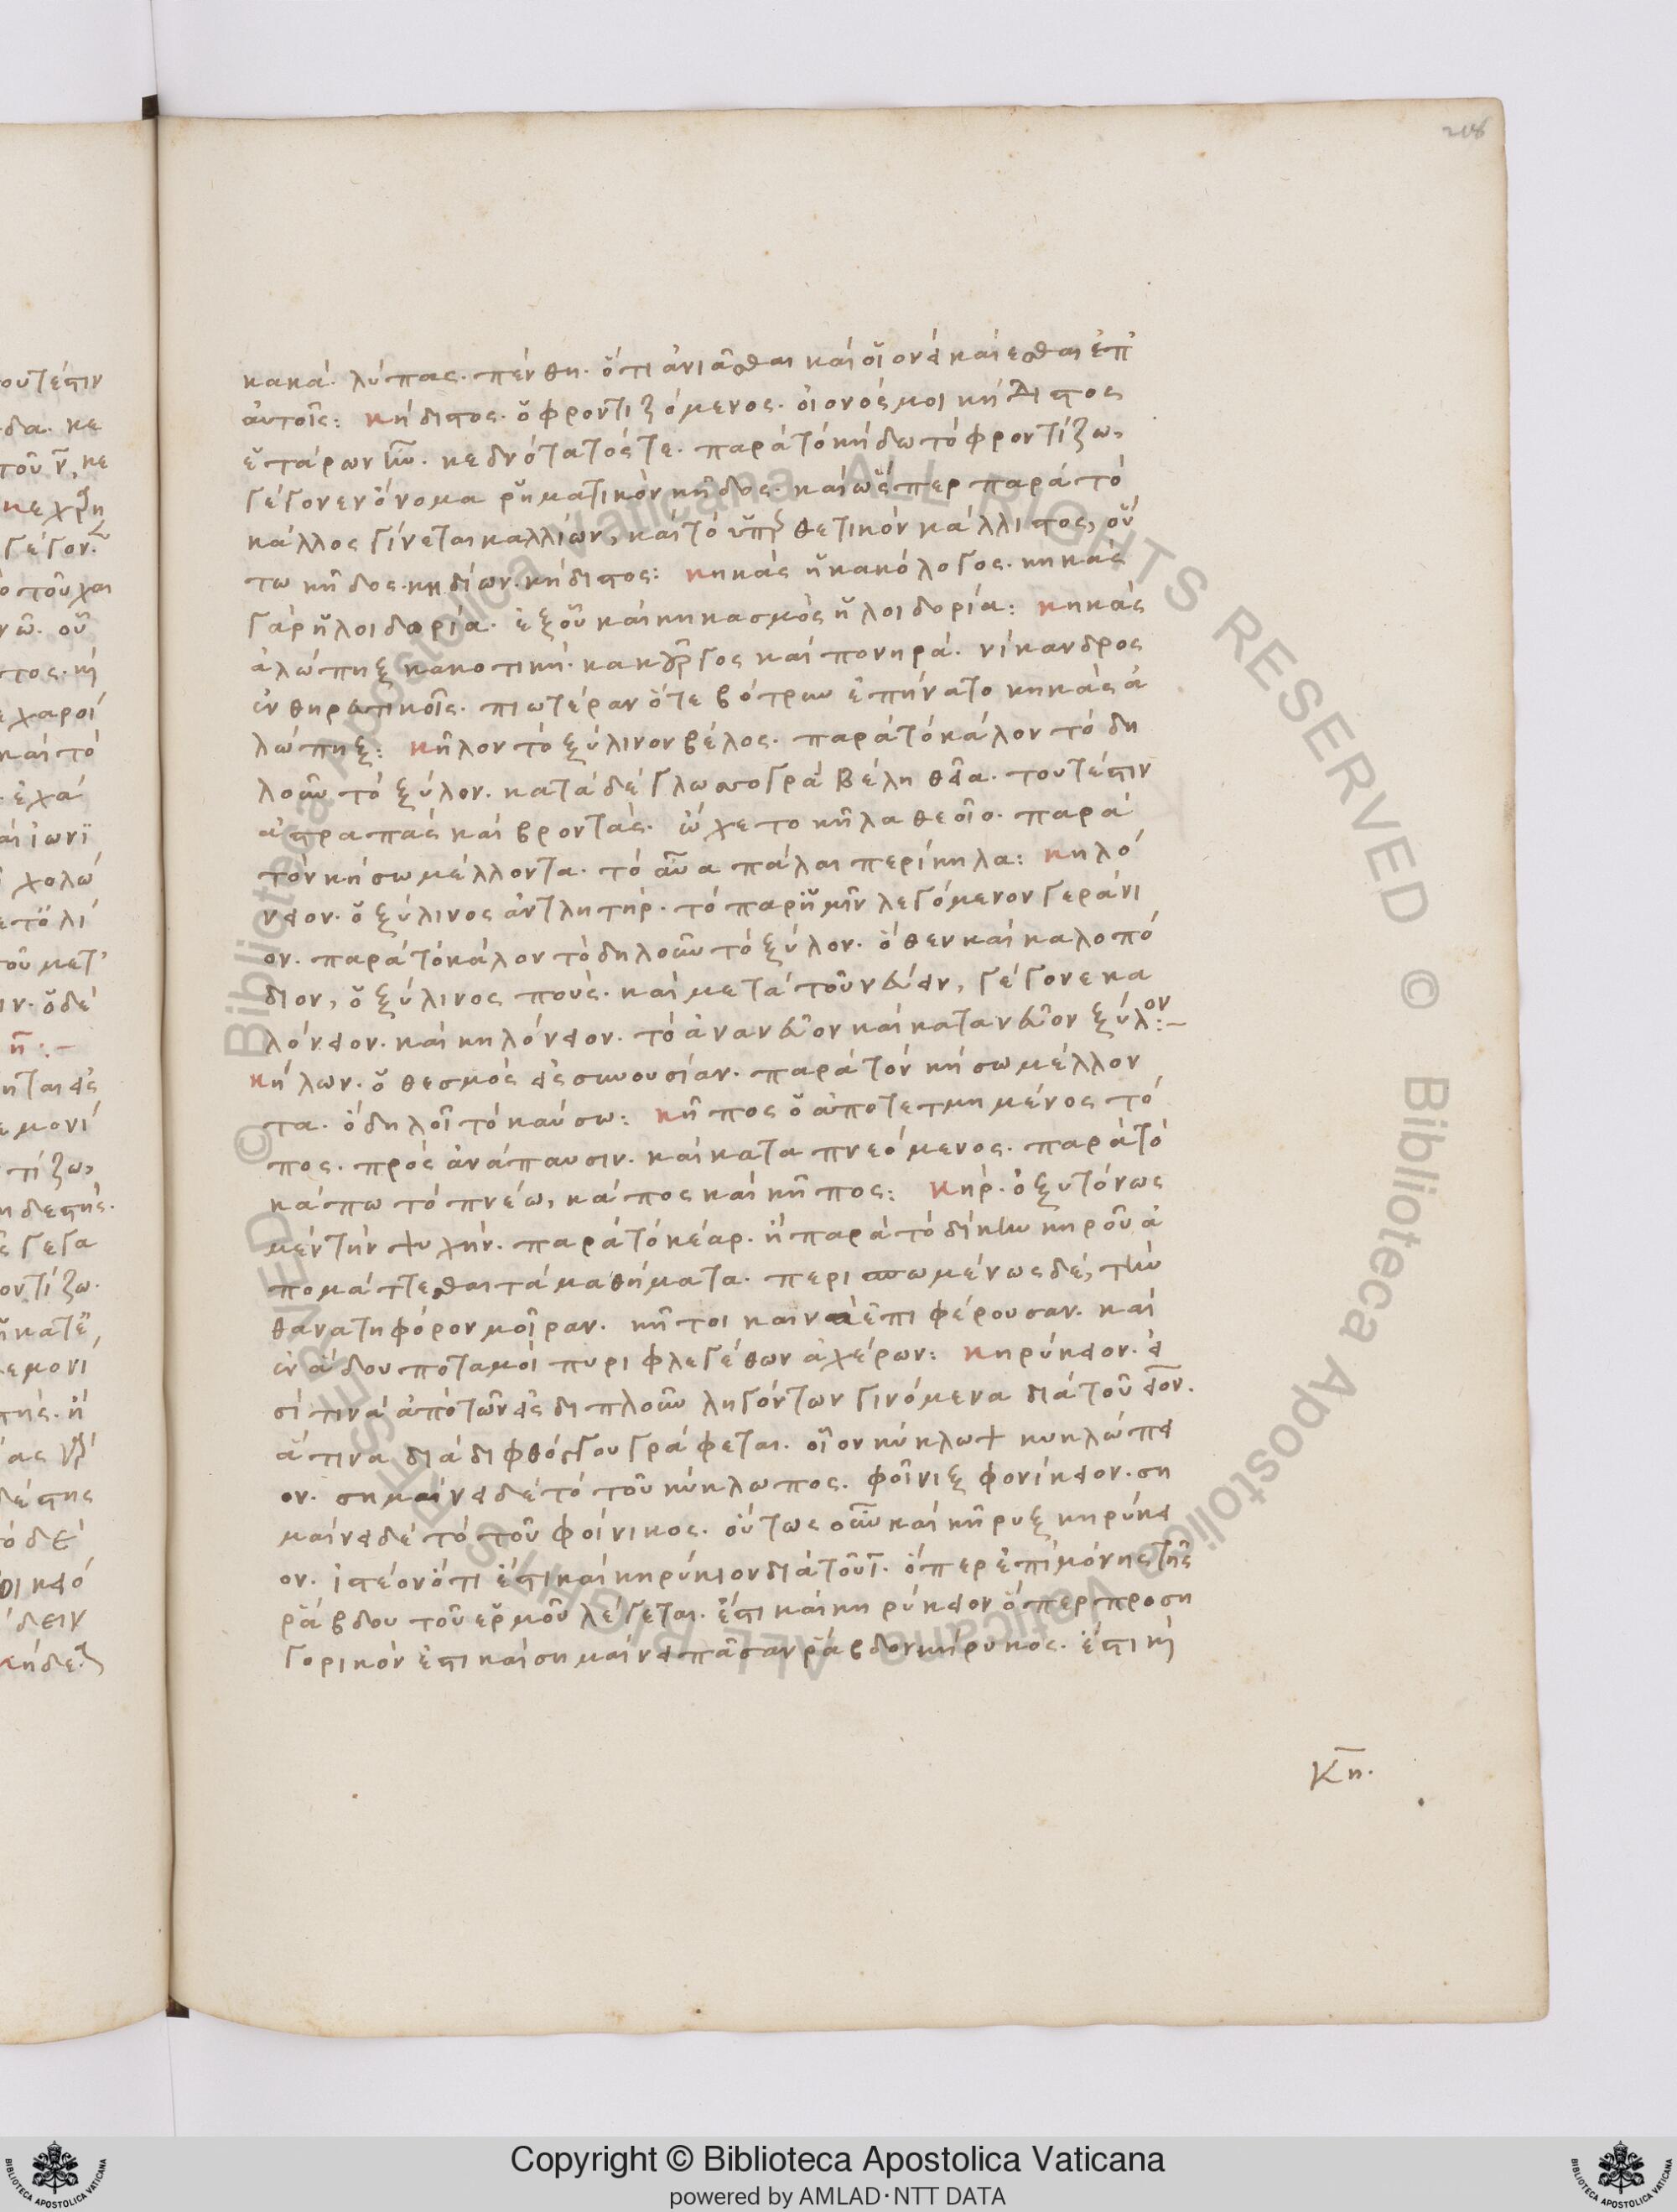 208
κακά. λύπας. πένθη. ὅτι ἀνιᾶσθαι καὶ οἱονεὶ καίεσθαι ἐπ'
αὐτοῖς: κήδιστος. ὁ φροντιζόμενος. οἷον ὅς μοι κήδιστος
ἑτάρων ἦν. κεδνότατός τε. παρὰ τὸ κήδω τὸ φροντίζω,
γέγονεν ὄνομα ῥηματικὸν κῆδος. καὶ ὥσπερ παρὰ τὸ
κάλλος γίνεται καλλίων, καὶ τὸ ὑπερθετικὸν κάλλιστος, οὕ
τω κῆδος. κηδίων. κήδιστος: κηκὰς ἡ κακόλογος. κηκὰς
γὰρ ἡ λοιδορία. ἐξ οὗ καὶ κηκασμὸς ἡ λοιδορία: κηκὰς
ἀλώπηξ κακοτική. κακοῦργος καὶ πονηρά. νίκανδρος
ἐν θηριακοῖς. πιωτέραν ὅτε βότρυν ἐπήνατο κηκὰς ἀ
λώπηξ: κῆλον τὸ ξύλινον βέλος. παρὰ τὸ κάλον τὸ δη
λοῦν τὸ ξύλον. κατὰ δὲ γλωσσογρά βέλη θεῖα. τουτέστιν
ἀστραπὰς καὶ βροντάς. ᾤχετο κῆλα θεοῖο. παρὰ
τὸν κήσω μέλλοντα. τὸ αὖα πάλαι περίκηλα: κηλό
νειον. ὁ ξύλινος ἀντλητήρ. τὸ παρ' ἡμῖν λεγόμενον γεράνι
ον. παρὰ τὸ κάλον τὸ δηλοῦν τὸ ξύλον. ὅθεν καὶ καλοπό
διον, ὁ ξύλινος πούς. καὶ μετὰ τοῦ νεύειν, γέγονε κα
λόνειον. καὶ κηλόνειον. τὸ ἀνανεῦον καὶ κατανεῦον ξύλον:-
κήλων. ὁ θεσμὸς εἰς συνουσίαν. παρὰ τὸν κήσω μέλλον
τα. ὃ δηλοῖ τὸ καύσω: κῆπος ὁ ἀποτετμημένος τό
πος. πρὸς ἀνάπαυσιν. καὶ καταπνεόμενος. παρὰ τὸ
κάπω τὸ πνέω, κάπος καὶ κῆπος: κήρ. ὀξυτόνως
μὲν τὴν ψυχήν. παρὰ τὸ κέαρ. ἢ παρὰ τὸ δίκην κηροῦ ἀ
πομάττεσθαι τὰ μαθήματα. περισπωμένως δέ, τὴν
θανατηφόρον μοῖραν. κῆτοι καινὰ ἐπιφέρουσαν. καὶ
ἐν ἅδου ποταμοὶ πυριφλεγέθων ἀχέρων: κηρύκειον. εἰ
σί τινα ἀπὸ τῶν εἰς διπλοῦν ληγόντων γινόμενα διὰ τοῦ ειον.
ἅτινα διὰ διφθόγγου γράφεται. οἷον κύκλωψ κυκλώπει
ον. σημαίνει δὲ τὸ τοῦ κύκλωπος. φοῖνιξ φονίκειον. ση
μαίνει δὲ τὸ τοῦ φοίνικος. οὕτως οὖν καὶ κῆρυξ κηρύκει
ον. ἰστέον ὅτι ἔστι καὶ κηρύκιον διὰ τοῦ ι. ὅπερ ἐπὶ μόνης τῆς
ῥάβδου τοῦ ἑρμοῦ λέγεται. ἔστι καὶ κηρύκειον ὅπερ προση
γορικόν ἐστι καὶ σημαίνει πᾶσαν ῥάβδον κήρυκος. ἔστι κὶ
Κη.